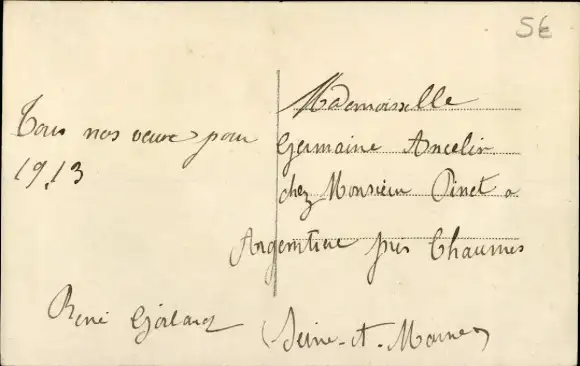 5€
Tous nos veux pour
1913
Mademoiselle
Germaine Ancelin
chez Monsieur Pinet a
Argentiere près Chaumes
(Seine-et-Marne)
René